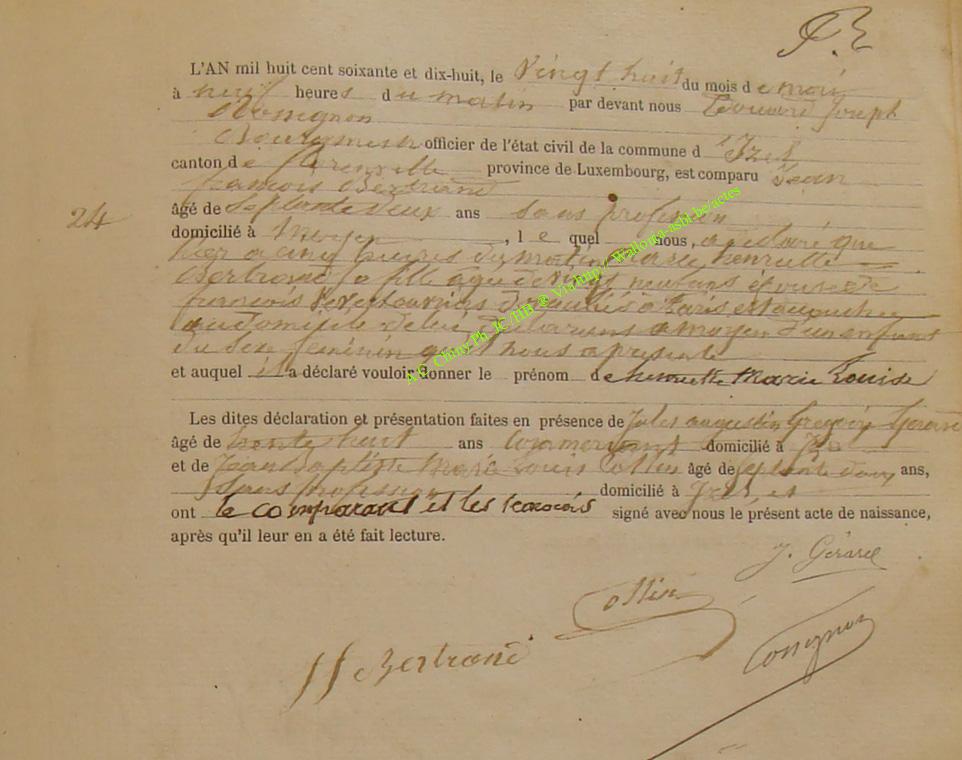 L'AN mil huit cent soixante et dix-huit, le Vingt huit du mois de mai
à neuf heures du matin par devant nous Edouard Joseph
Rossignon
Bourgmestre officier de l'état civil de la commune d'Izel
canton de Florenville province de Luxembourg, est comparu Jean
francois Bertrand
24
âgé de Septante deux ans Sans profession
domicilié à Moyen, lequel nous, a déclaré que
hier a cinq heures du matin Marie henriette
Bertrand sa fille agée de vingt neuf ans épouse de
francois a Paris est accouchée
au domicile de lui déclarant a moyen d'un enfant
du Sexe féminin qu'il nous a présenté
et auquel il a déclaré vouloir donner le prénom de henriette Marie Louise
Les dites déclaration et présentation faites en présence de Jules augustin Gregoire Gérard
âgé de trente huit ans Commercant domicilié à Izel
et de Jean Baptiste Marie Louis Collin âgé de Septante deux ans,
Sans profession domicilié à Izel, et
ont le comparant et les témoins signé avec nous le présent acte de naissance,
après qu'il leur en a été fait lecture.
J. Gérard
Collin
JF Bertrand
Rossignon